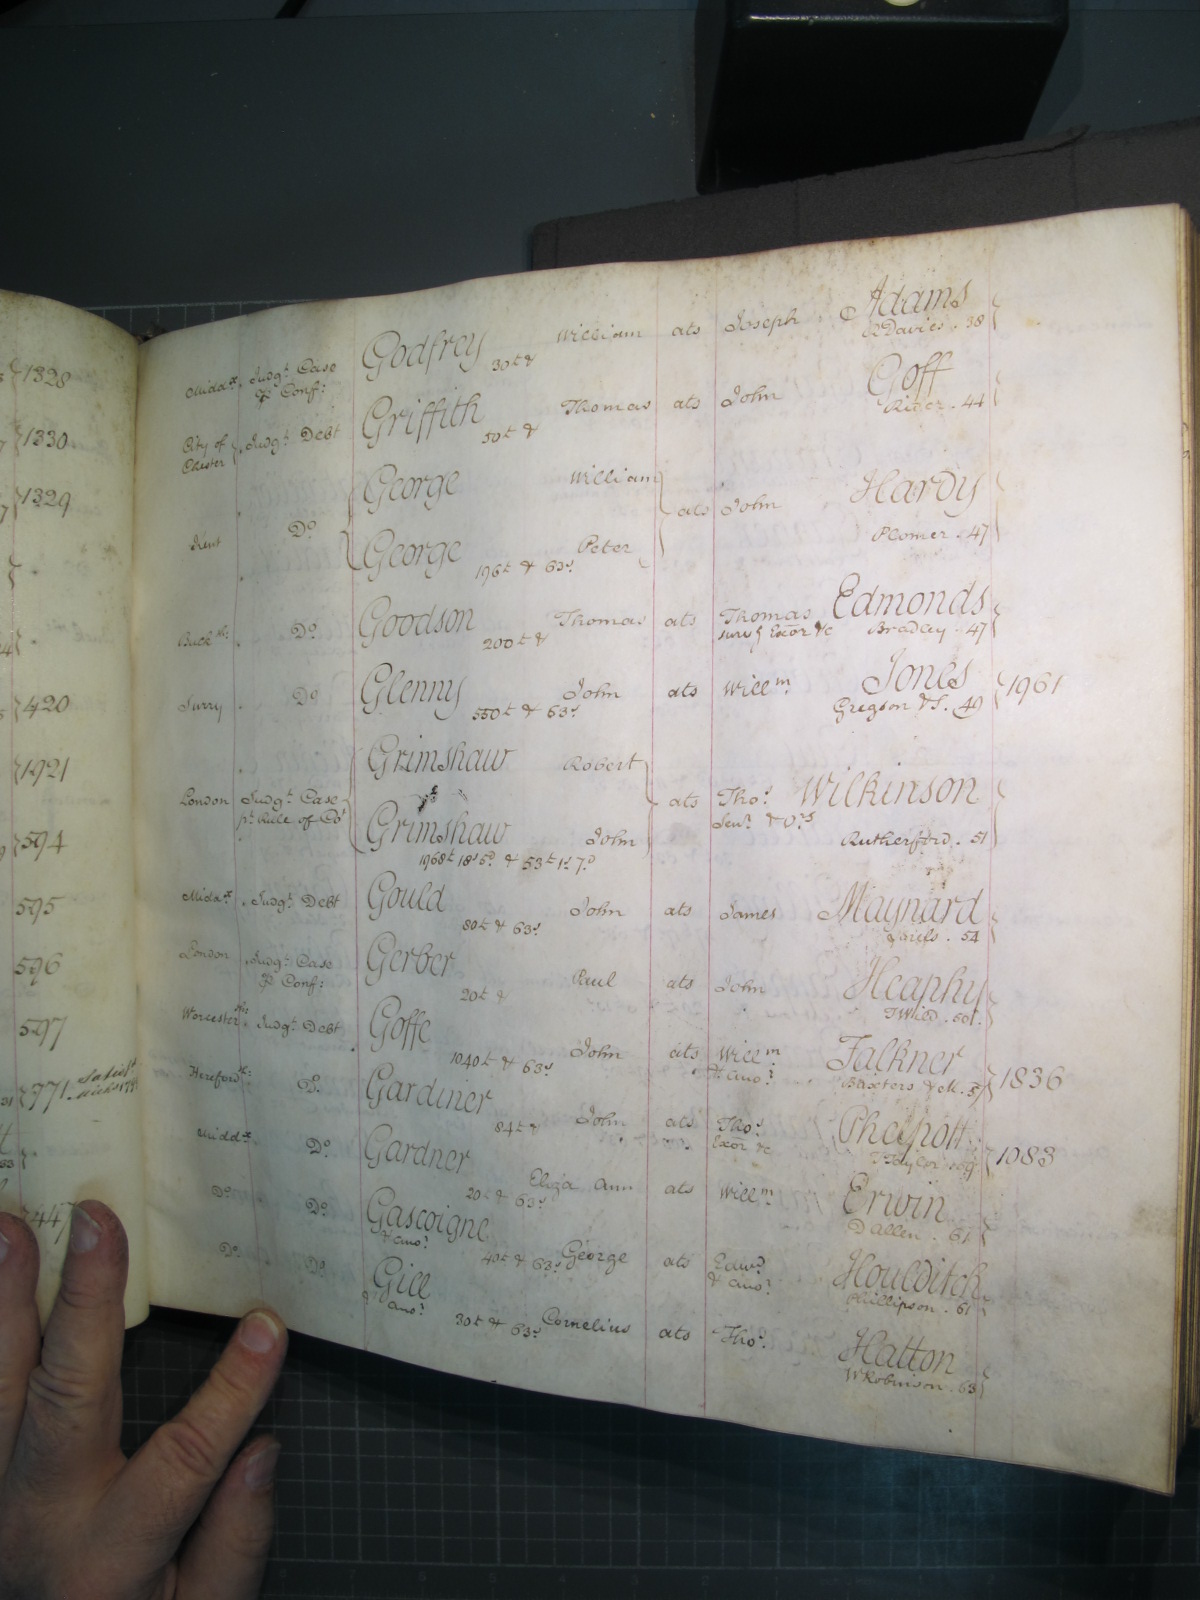 1328
1330
1329
420
1921
594
595
596
597
771
447
Midd.x Judg.t Case Godfrey William ats Joseph Adams
& Conf: 30£ & RDavies . 38
City of Judg.t Debt Griffith Thomas ats John Goff
Chester 50£ & Rider . 44
George William
Kent D.o ats John Hardy
George Peter Plomer . 47
196£ & 63s
Buck.sh: D.o Goodson Thomas ats Thomas Edmonds
200£ & surv.g Exor &c Bradley . 47
Surry D.o Glenny John ats Will.m Jones 1961
550£ & 63s Gregson & S. 49
Grimshaw Robert
London Judg.t Case ats Tho.s Wilkinson
p.t Rule of Co.t Grimshaw John Sen.r & O.rs Rutherford . 51
1968£ 18s 5d & 53£ 1s 7d
Midd.x Judg.t Debt Gould John ats James Maynard
80£ & 63s 54
London Judg.t Case Gerber Paul ats John Heaphy
& Conf: 20£ & TWild . 50
Worcester.sh: Judg.t Debt Goffe John ats Will.m Falkner 1836
1040£ & 63s & ano.r Baxters & M. 57
Hereford.sh: D.o Gardiner John ats Tho.s Phelpott 1083
84£ & Exor &c TTayler
Midd.x D.o Gardner Eliza Ann ats Will.m Erwin
20£ & 63s Dallen . 61
D.o D.o Gascoigne George ats Edw.d Houlditch
& ano.r 40£ & 63s & ano.r Phillipson . 61
D.o D.o Gill Cornelius ats Tho.s Hatton
& ano.r 30£ & 63s WRobinson . 63